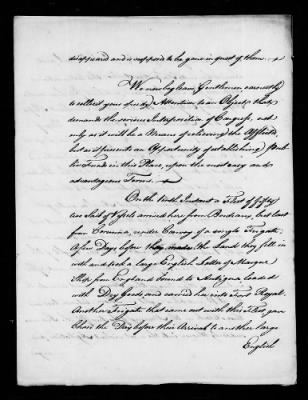 disappeared and is supposed to be gone in quest of them.
We now beg leave Gentlemen earnestly
to sollicit your speedy Attention to an Object, that
demands the serious Interposition of Congress, not
only as it will be a Means of relieving the Afflicted
but as it presents an Opportunity of establishing Pub-
lic Funds in this Place, upon the most easy and
advantageous Terms.
On the tenth Instant a Fleet of fifty
two Sail of Vessels arrived here from Bordeaux, but last
from Coronna, under Convoy of a single Frigate.
A few Days before they made the Land they fell in
with and took a large English Letter of Marque
Ship from England bound to Antigua loaded
with Dry Goods, and carried her into Fort Royal.
Another Frigate that came out with this Fleet, gave
Chase the Day before their Arrival to another large
English